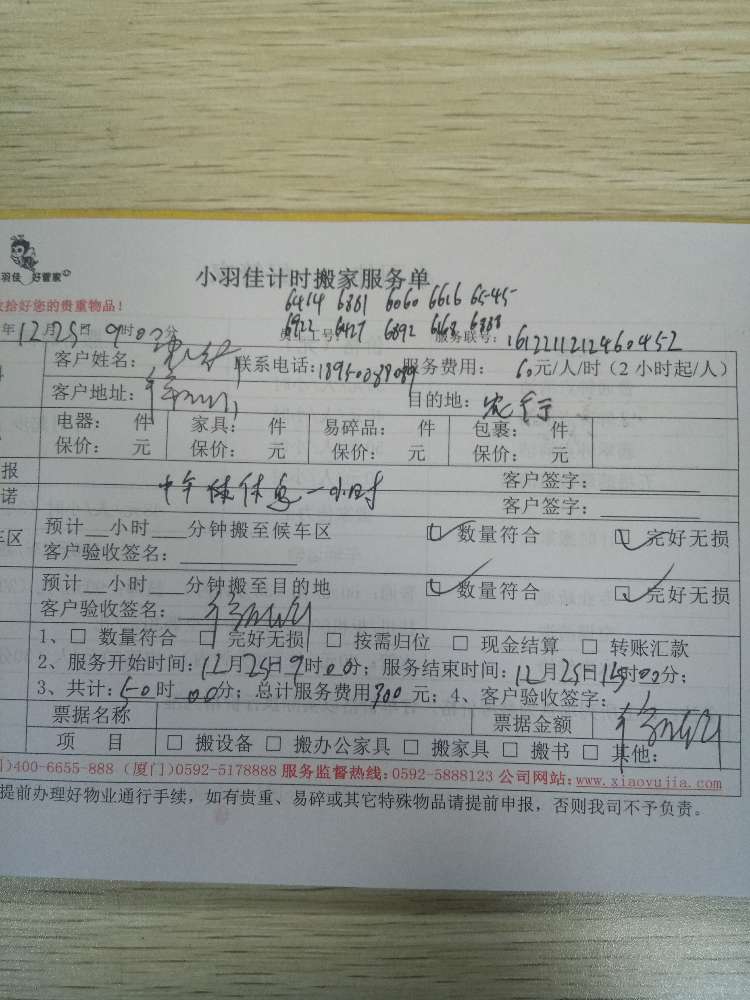 羽佳 好管家
小羽佳计时搬家服务单
收拾好您的贵重物品！
6414 6861 6060 6616 6545
6922 6427 6892 6168 6888
年12月25日 9时00分 员工工号 服务联号：1612211212460452
客户姓名： 联系电话： 服务费用： 60元/人/时（2 小时起/人）
客户地址： 目的地：农行
电器： 件 家具： 件 易碎品： 件 包裹： 件
保价： 元 保价： 元 保价： 元 保价： 元
报 客户签字：
中午休息一小时
诺 客户签字：
车区 预计__小时___分钟搬至候车区 数量符合 完好无损
客户验收签名：
预计__小时___分钟搬至目的地 数量符合 完好无损
客户验收签名：
1、□ 数量符合 □ 完好无损 □ 按需归位 □ 现金结算 □ 转账汇款
2、服务开始时间：12月25日9时00分；服务结束时间：12月25日15时00分；
3、共计： 时00分；总计服务费用300元；4、客户验收签字：
票据名称 票据金额
项 目 □ 搬设备 □ 搬办公家具 □ 搬家具 □ 搬书 □ 其他：
)400-6655-888 (厦门)0592-5178888 服务监督热线:0592-5888123 公司网站:www.xiaoyujia.com
提前办理好物业通行手续，如有贵重、易碎或其它特殊物品请提前申报，否则我司不予负责。